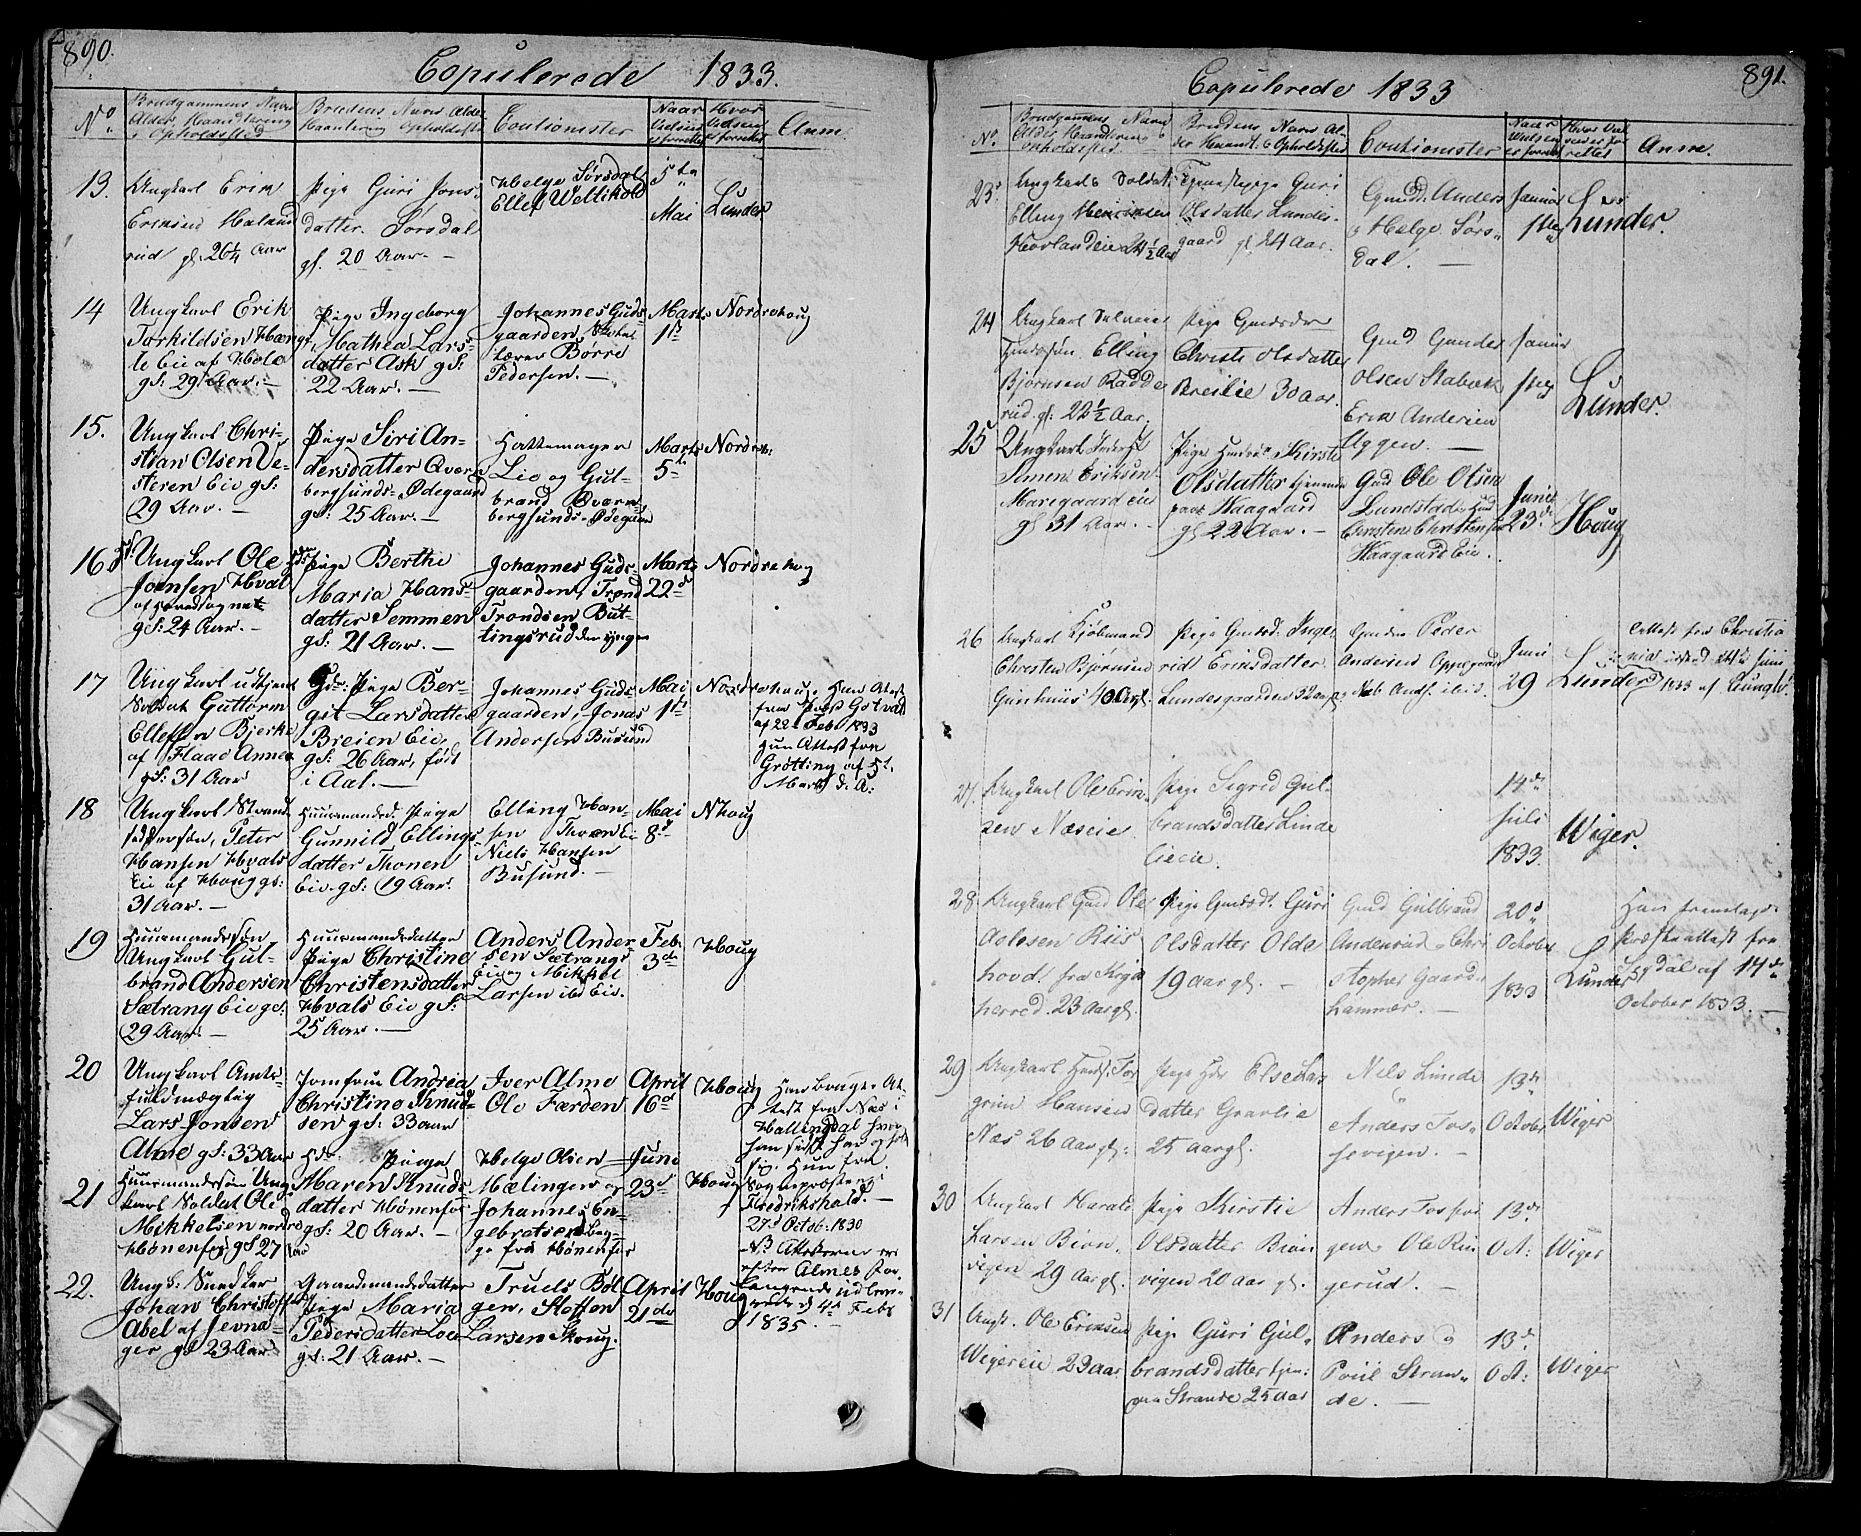 890.
Copulerede 1833.
No.
Brudgommens Navn
Alder, Haandtering
& Opholdssted
Brudens Navn Alder
Haantering Opholdssted
Coutionister
Naar
Vielsen
er forrettet
Hvor
Vielsen
er forrettet
Anm
13.
Ungkarl Erik
Eriksen
rud gl. 26¼ Aar
Pige Guri Jons-
datter Sørsdal
gl. 20 Aar. —
Helge Sørsdal
Ellef Wellikold
5te
Mai
Lunder
14
Ungkarl Erik
Torkildsen
te Eie af Hole
gl: 29 Aar. —
Pige Ingeborg
Mathea Lars-
datter Ask gl:
22 Aar. —
Johannes Guds-
gaarden, Skole
lærer Børre
Pedersen. —
Marts
1ste
Nordrehoug
15.
Ungkarl Chri-
stian Olsen Ve-
steren Eie gl:
29 Aar. —
Pige Siri An-
dersdatter Qvern
bergsunds-Ødegaard
gl: 25 Aar. —
Hattemager
Lie og Gul-
brand Qvern-
bergsunds-Ødegaar
Marts
5te
Nordreh:
16
Ungkarl Ole
Joensen Hval
gl: 24 Aar. —
Pige Berthe
Maria Hans-
datter Semmen
gl: 21 Aar. —
Johannes Guds-
gaarden, Trond
Trondsen But-
tingsrud den yngre
Marts
22de
Nordrehog
17
Ungkarl udtjent
Soldat Guttorm
Ellefsen Bjerke
af Flaae Annex
gl: 31 Aar
Pige Ber-
git Larsdatter
Breien Eie,
gl: 26 Aar, født
i Aal. —
Johannes Guds-
gaarden, Jonas
Andersen Busund
Mai
1ste
Nordrehoug
Han Attest
fra Præst Gotvad
af 22 Feb 1833
hun Attest fra
Grötting af 5t.
Marts d. A:
18
Ungkarl Strand
sidderson, Peter
Hansen Hvals
Eie af Houg gl:
31 Aar. —
Huusmandsd. Pige
Gunnild Ellings
datter Thonen
Eie. gl: 19 Aar.
Elling Han-
sen Thoren Ei
Niels Hansen
Busund. —
Mai
8de
Nhoug
19
Huusmandssøn
Ungkarl Gul-
brand Andersen
Sætrang Eie gl:
29 Aar. —
Huusmandsdatter
Pige Christine
Christensdatter
Hvals Eie gl:
25 Aar. —
Anders Ander
sen Sætrangs
Eie og Mikkel
Larsen ibd Eie.
Feb:
3de
Houg
20
Ungkarl Amts-
fuldmægtig
Lars Jonsen
Alme gl: 33 Aar
Jomfrue Andrea
Christine Knud-
sen gl: 33 aar
Iver Alme
Ole Færden
April
16de
Houg
Han bragte At-
test fra Næs i
Hallingdal hvor
han sidst har opholdt
sig. Hun fra
Sognepræsten i
Fredrikshald. —
27de Octob: 1830
NB Attesterne ere
efter Almes For-
langende udleve-
rede d 4de Feb
1835. —
21
Huusmandssøn Ung
karl Soldat Ole
Mikkelsen nordre
Hønenfos, gl 27 Aar
Pige
Maren Knuds
datter Hønenfos
gl: 20 Aar. —
Helge Olsen
Mælingen og
Johannes En-
gebretsen Beg-
ge fra Hønenfos
Juni
23de
Houg
22.
Ungk: Snedker
Johan Christoffer
Abel af Jevna-
ger gl 23 Aar
Gaardmandsdatter
Pige Maria
Pedersdatter Loe
gl: 21 Aar. —
Truels Böl-
gen, Stoffen
Larsen Skoug.
April
21de
Houg
891.
Copulerede 1833
No.
Brudgommens Navn
Alder Haandtering &
Opholdssted
Brudens Navn Al-
der Haandt. & Opholdssted
Coutionister
Naar
Vielsen
er forrettet
Hvor Viel
sen er for
rettet
Anm.
23.
Ungkarl Soldat
Elling Henriksen
Hovlandeie 24½ Aar
Tjenestepige Guri
Olsdatter Lunde-
gaard gl. 24 Aar.
Gmd. Anders
& Helge Sørs-
dal. —
Januar
1ste
Lunder.
24
Ungkarl
Elling
Bjørnsen Radde
rud. gl: 22½ Aar.
Pige
Christi Olsdatter
Breilie 30 Aar.
Gmd Gunder
Olsen Stabæk
Erik Andersen
Uggen. —
Januar
Lunder.
25
Ungkarl
Simen Eriksen
Maregaard eie
gl 31 Aar. —
Pige Kirste
Olsdatter tjenende
paa Haagaard
gl 22 Aar. —
Gmd Ole Olsen
Lundstad
Christen Christensen
Haagaards Eie.
Junii
23de
Houg
26
Ungkarl Kjøbmand
Christen Bjørnsen
Gunhuus 40 Argl.
Pige Gmdsd: Inge-
rid Eriksdatter
Lundesgaarden 32 argl
Gmden Peder
Andersen Oppegaard
Juni
29
Lunder
Attest fra Christia
nia 24de Juni
1833 af
27.
Ungkarl Ole Erik-
sen Næseie.
Pige Sigrid Gul-
brandsdatter Linde
lieeie.
14de
Juli
1833.
Wiger.
28
Ungkarl Gmd Ole
Aolesen Riis
hovd. fra Krøds
herred. 23 aar gl.
Pige Gmdsdt. Guri
Olsdatter Olde
19 aar gl. —
Gmd Gulbrand
Anderud & Chri
stopher Gaard-
hammer. —
20de
October
1833
Lunder
Han fremlagde
Præsteattest fra
Sigdal af 14de
October 1833. —
29
Ungkarl
grim Hansen
Næs 26 aar gl:
Pige Else Lars
datter Gravlie
25 aar gl.
Niels Linde
Anders Fos-
hovigen. —
13de
October
Wiger
30
Ungkarl Harald
Larsen Bion-
vigen 29 Aar gl.
Pige Kirstie
Olsdatter Bion
vigen 20 aar gl.
Anders Foshovi
gen & Ole Rin
gerud. —
13de
Oct:
Wiger
31
Ungk. Ole Eriksen
Wigereie 23 aar
Pige Guri Gul-
brandsdatter tjen:
paa Strande 25 aar
Anders &
Poül Stran-
de. —
13de
Oct:
Wiger